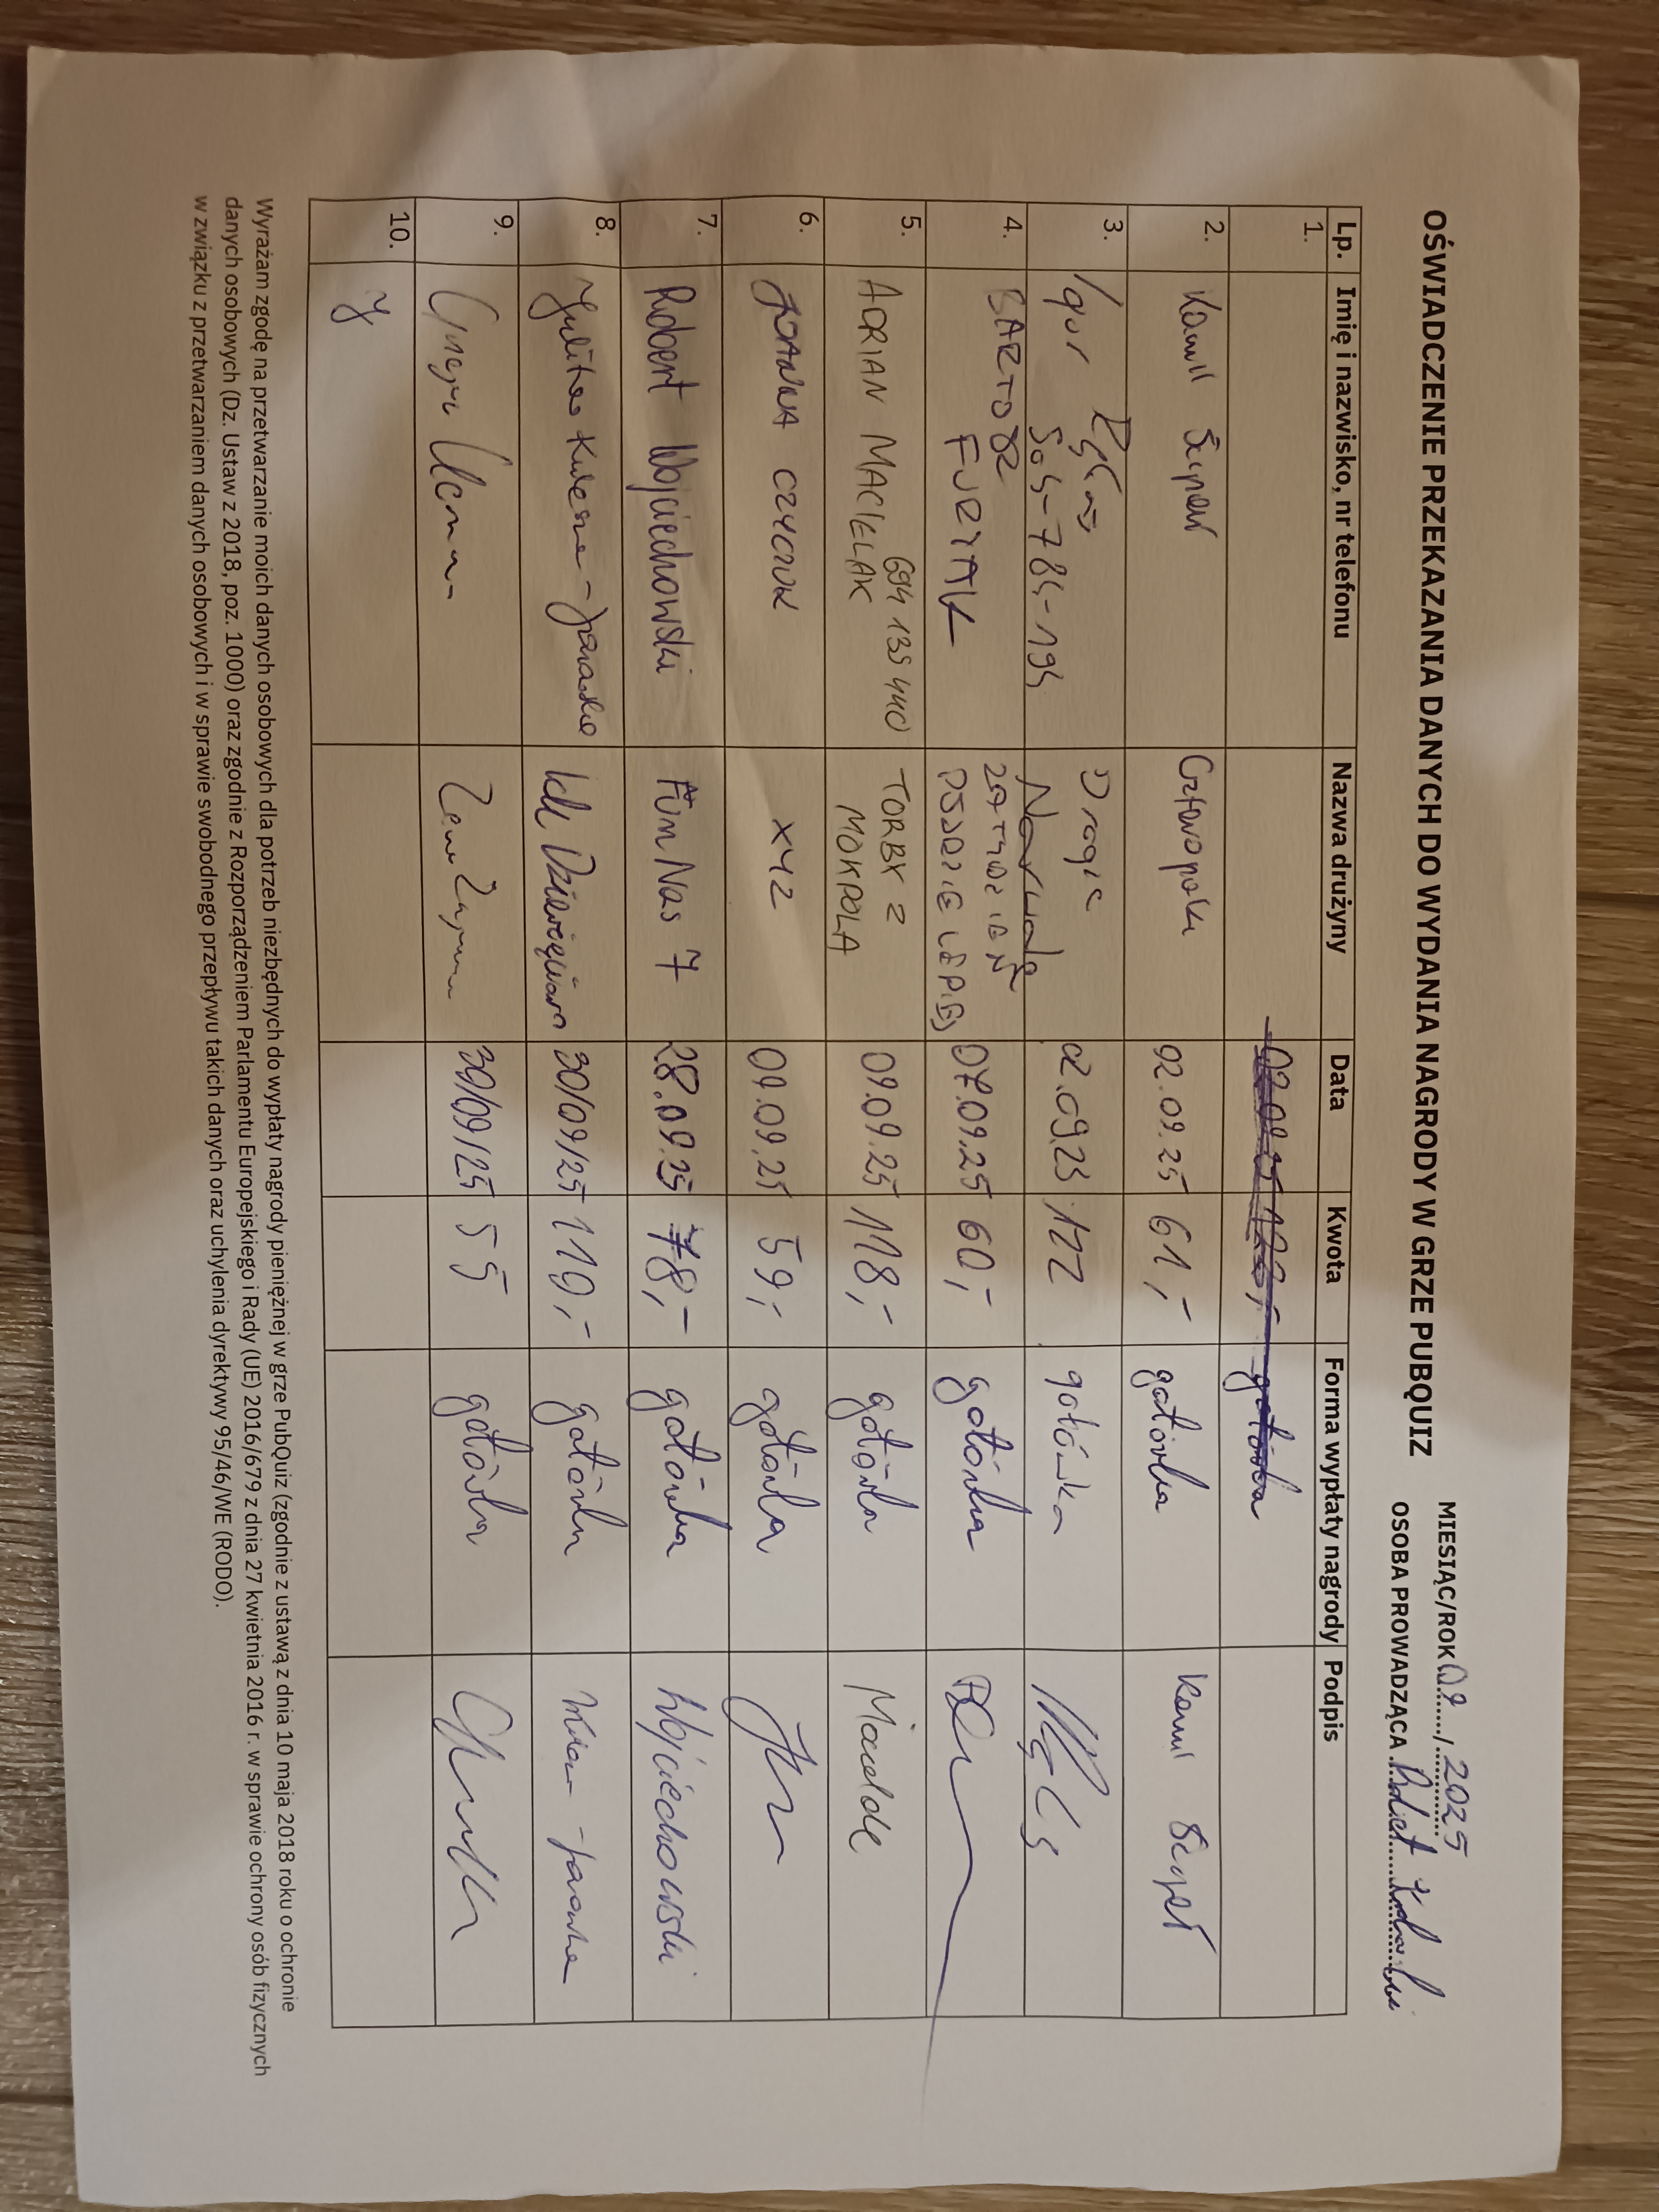 OŚWIADCZENIE PRZEKAZANIA DANYCH DO WYDANIA NAGRODY W GRZE PUBQUIZ
MIESIĄC/ROK 09 / 2025
OSOBA PROWADZĄCA
Lp. Imię i nazwisko, nr telefonu Nazwa drużyny Data Kwota Forma wypłaty nagrody Podpis
1. gotówka
2. Kamil 02.09.25 61,- gotówka Kamil
3. Igor Drogie 02.09.25 122 gotówka
505-785-195 Narwale
4. BARTOSZ ZA TYDZIEŃ 07.09.25 60,- gotówka
FURYAK BĘDZIE LEPIEJ
5. 694 139 440 TORBY Z 09.09.25 118,- gotówka
ADRIAN MACIELAK MOKPOLA
6. JOANNA CZYCZUK XYZ 09.09.25 59,- gotówka
7. Robert Wojciechowski Fun Nas 7 28.09.25 78,- gotówka Wojciechowski
8. Julita Kulesza - 30/09/25 110,- gotówka
9. 30/09/25 55 gotówka
10. J
Wyrażam zgodę na przetwarzanie moich danych osobowych dla potrzeb niezbędnych do wypłaty nagrody pieniężnej w grze PubQuiz (zgodnie z ustawą z dnia 10 maja 2018 roku o ochronie
danych osobowych (Dz. Ustaw z 2018, poz. 1000) oraz zgodnie z Rozporządzeniem Parlamentu Europejskiego i Rady (UE) 2016/679 z dnia 27 kwietnia 2016 r. w sprawie ochrony osób fizycznych
w związku z przetwarzaniem danych osobowych i w sprawie swobodnego przepływu takich danych oraz uchylenia dyrektywy 95/46/WE (RODO).